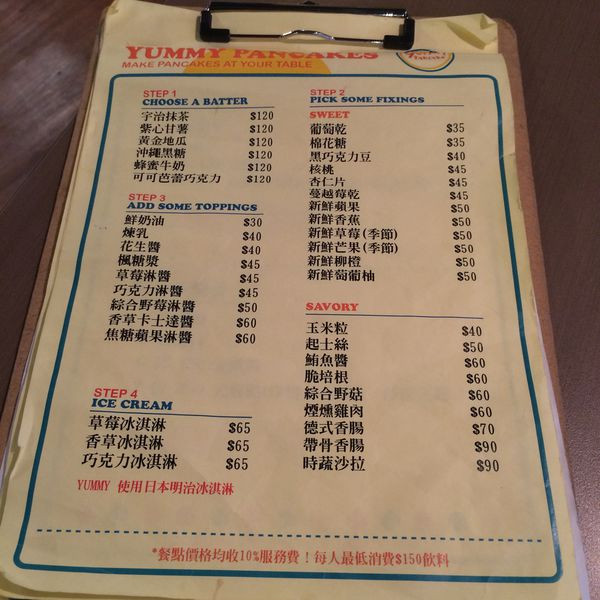 YUMMY PANCAKES
MAKE PANCAKES AT YOUR TABLE
STEP 1
CHOOSE A BATTER
宇治抹茶 $120
紫心甘薯 $120
黃金地瓜 $120
沖繩黑糖 $120
蜂蜜牛奶 $120
可可芭蕾巧克力 $120
STEP 3
ADD SOME TOPPINGS
鮮奶油 $30
煉乳 $40
花生醬 $40
楓糖漿 $45
草莓淋醬 $45
巧克力淋醬 $45
綜合野莓淋醬 $50
香草卡士達醬 $60
焦糖蘋果淋醬 $60
STEP 4
ICE CREAM
草莓冰淇淋 $65
香草冰淇淋 $65
巧克力冰淇淋 $65
YUMMY 使用日本明治冰淇淋
STEP 2
PICK SOME FIXINGS
SWEET
葡萄乾 $35
棉花糖 $35
黑巧克力豆 $40
核桃 $45
杏仁片 $45
蔓越莓乾 $45
新鮮蘋果 $50
新鮮香蕉 $50
新鮮草莓(季節) $50
新鮮芒果(季節) $50
新鮮柳橙 $50
新鮮萄葡柚 $50
SAVORY
玉米粒 $40
起士絲 $50
鮪魚醬 $60
脆培根 $60
綜合野菇 $60
煙燻雞肉 $60
德式香腸 $70
帶骨香腸 $90
時蔬沙拉 $90
*餐點價格均收10%服務費！每人最低消費$150飲料